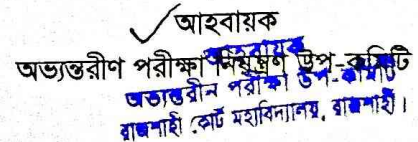 আহবায়ক
আহবায়ক
অভ্যন্তরীণ পরীক্ষা নিয়ন্ত্রণ উপ-কমিটি
অভ্যন্তরীন পরীক্ষা উপ-কমিটি
রাজশাহী কোর্ট মহাবিদ্যালয়, রাজশাহী।